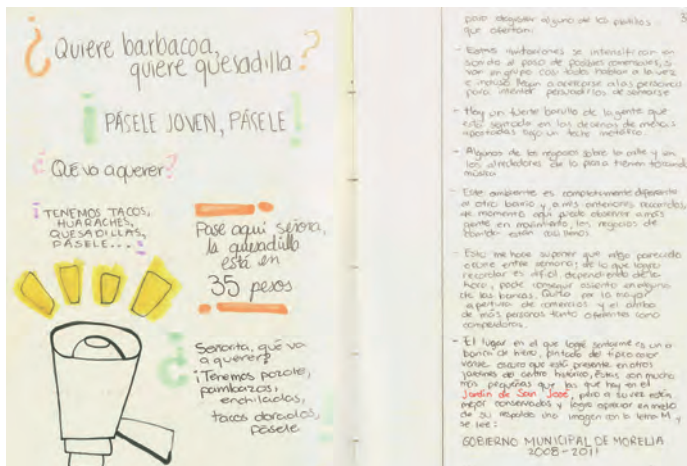 ¿Quiere barbacoa,
quiere quesadilla?
¡PÁSELE JOVEN, PÁSELE!
¿Qué va a querer?
¡TENEMOS TACOS,
HUARACHES,
QUESADILLAS,
PÁSELE...!
¡Pase aquí señora,
la quesadilla
está en
35 pesos!
¿Señorita, qué va
a querer?
¡Tenemos pozole,
pambazos,
enchiladas,
tacos dorados,
pásele
3
para degustar alguno de los platillos
que ofertan.
- Estas invitaciones se intensifican en
sonido al paso de posibles comensales, si
van en grupo casi todos hablan a la vez
e incluso llegan a acercarse a las personas
para intentar persuadirlos de sentarse
- Hay un fuerte barullo de la gente que
está sentada en las decenas de mesas
apostadas bajo un techo metálico.
- Algunos de los negocios sobre la calle y en
los alrededores de la plaza tienen tocando
música
- Este ambiente es completamente diferente
al otro barrio y a mis anteriores recuerdos,
de momento aquí puedo observar a más
gente en movimiento, los negocios de
comida están casi llenos.
- Esto me hace suponer que algo parecido
ocurre entre semana; de lo que logro
recordar es difícil dependiendo de la
hora, poder conseguir asiento en alguna
de las bancas. Quizá por la mayor
apertura de comercios y el arribo
de más personas tanto oferentes como
compradoras.
- El lugar en el que logré sentarme es una
banca de hierro, pintada del típico color
verde oscuro que está presente en otros
jardines del centro histórico, éstas son mucho
más pequeñas que las que hay en el
Jardín de San José, pero a su vez están
mejor conservadas y logro apreciar en medio
de su respaldo una imagen con la letra M y
se lee:
GOBIERNO MUNICIPAL DE MORELIA
2008-2011